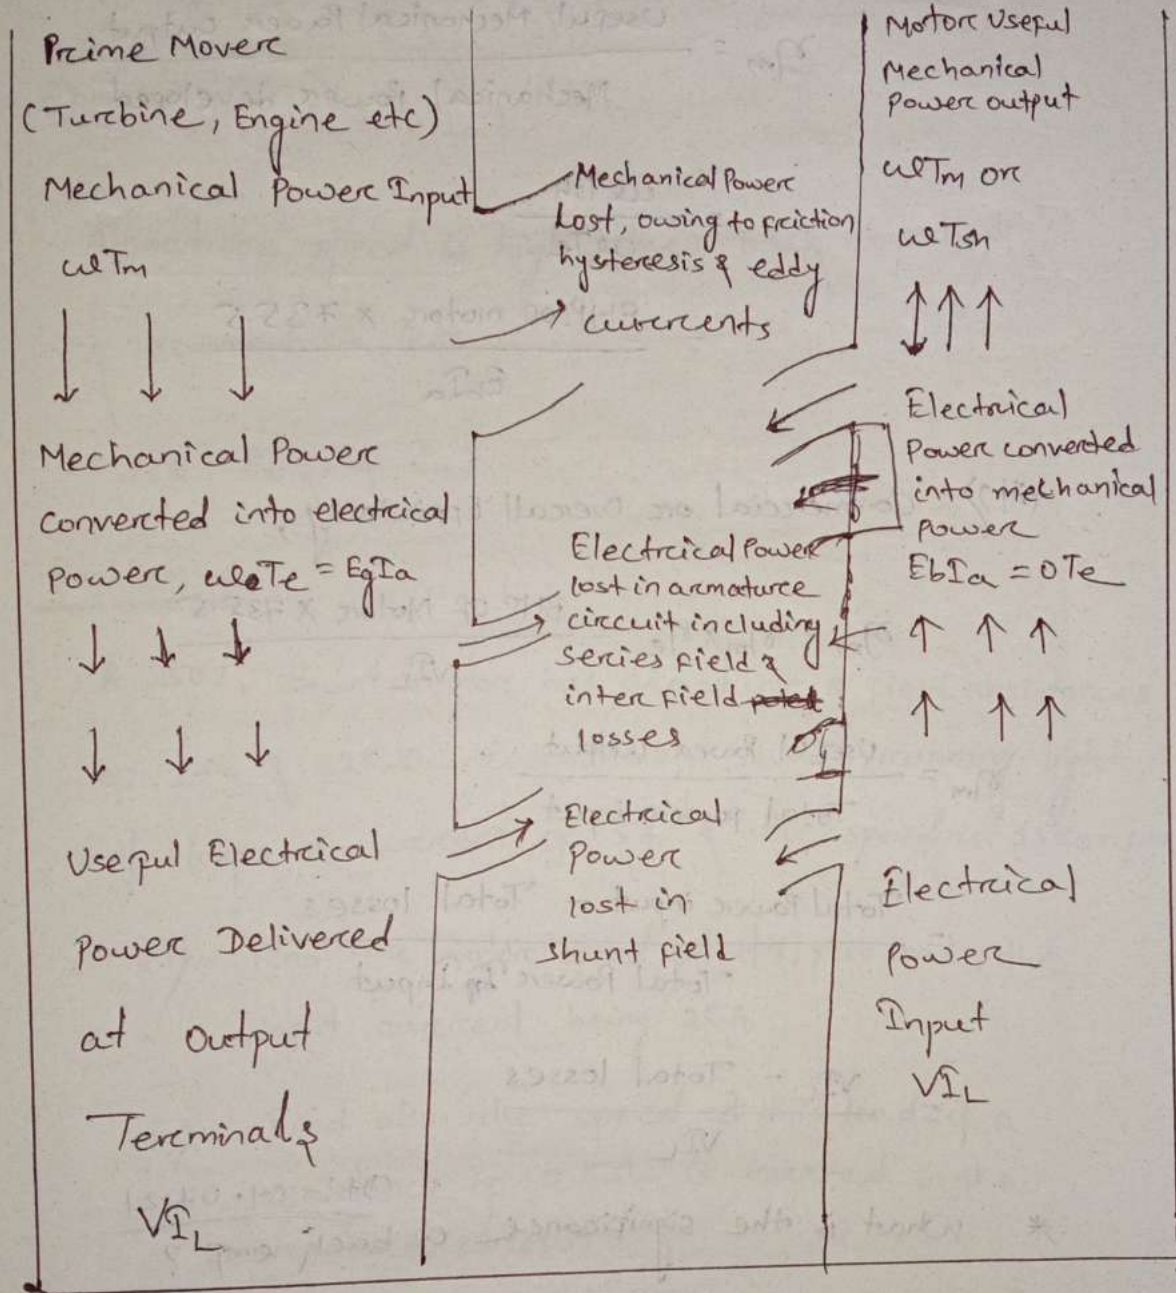 Prime Mover
(Turbine, Engine etc)
Mechanical Power Input
ωTm
Mechanical Power
converted into electrical
power, ωTe = EgIa
Useful Electrical
Power Delivered
at Output
Terminals
VIL
Mechanical Power
Lost, owing to friction
hysteresis & eddy
currents
Electrical Power
lost in armature
circuit including
series field &
inter field
losses
Electrical
Power
lost in
shunt field
Motor Useful
Mechanical
Power output
ωTm or
ωTsh
Electrical
Power converted
into mechanical
power
EbIa = 0Te
Electrical
Power
Input
VIL